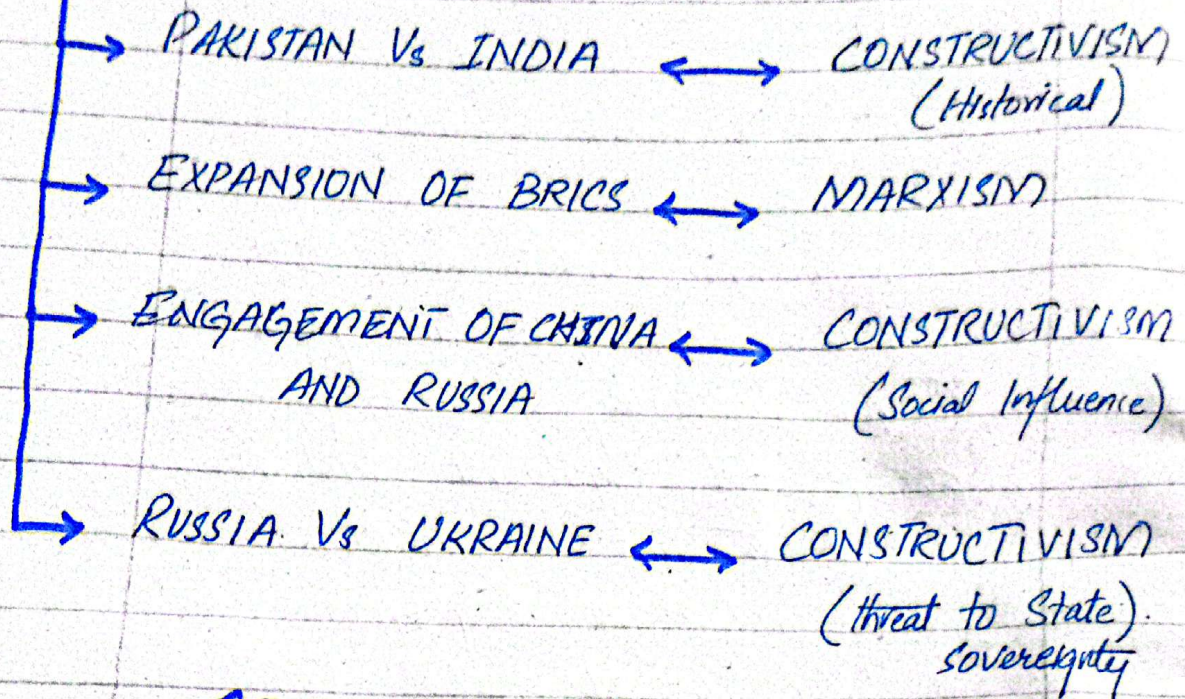 → PAKISTAN Vs INDIA ↔ CONSTRUCTIVISM
(Historical)
→ EXPANSION OF BRICS ↔ MARXISM
→ ENGAGEMENT OF CHINA ↔ CONSTRUCTIVISM
AND RUSSIA (Social Influence)
→ RUSSIA. Vs UKRAINE ↔ CONSTRUCTIVISM
(threat to State).
sovereignty